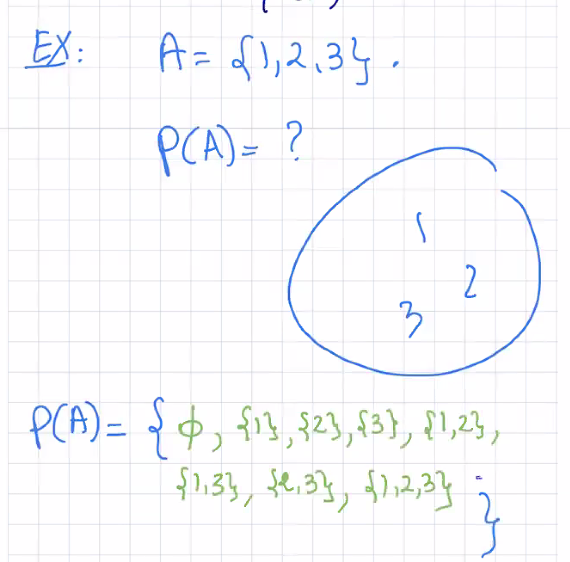 EX: A = {1, 2, 3}.
P(A) = ?
1
2
3
P(A) = { ϕ, {1}, {2}, {3}, {1,2},
{1,3}, {2,3}, {1,2,3}
}